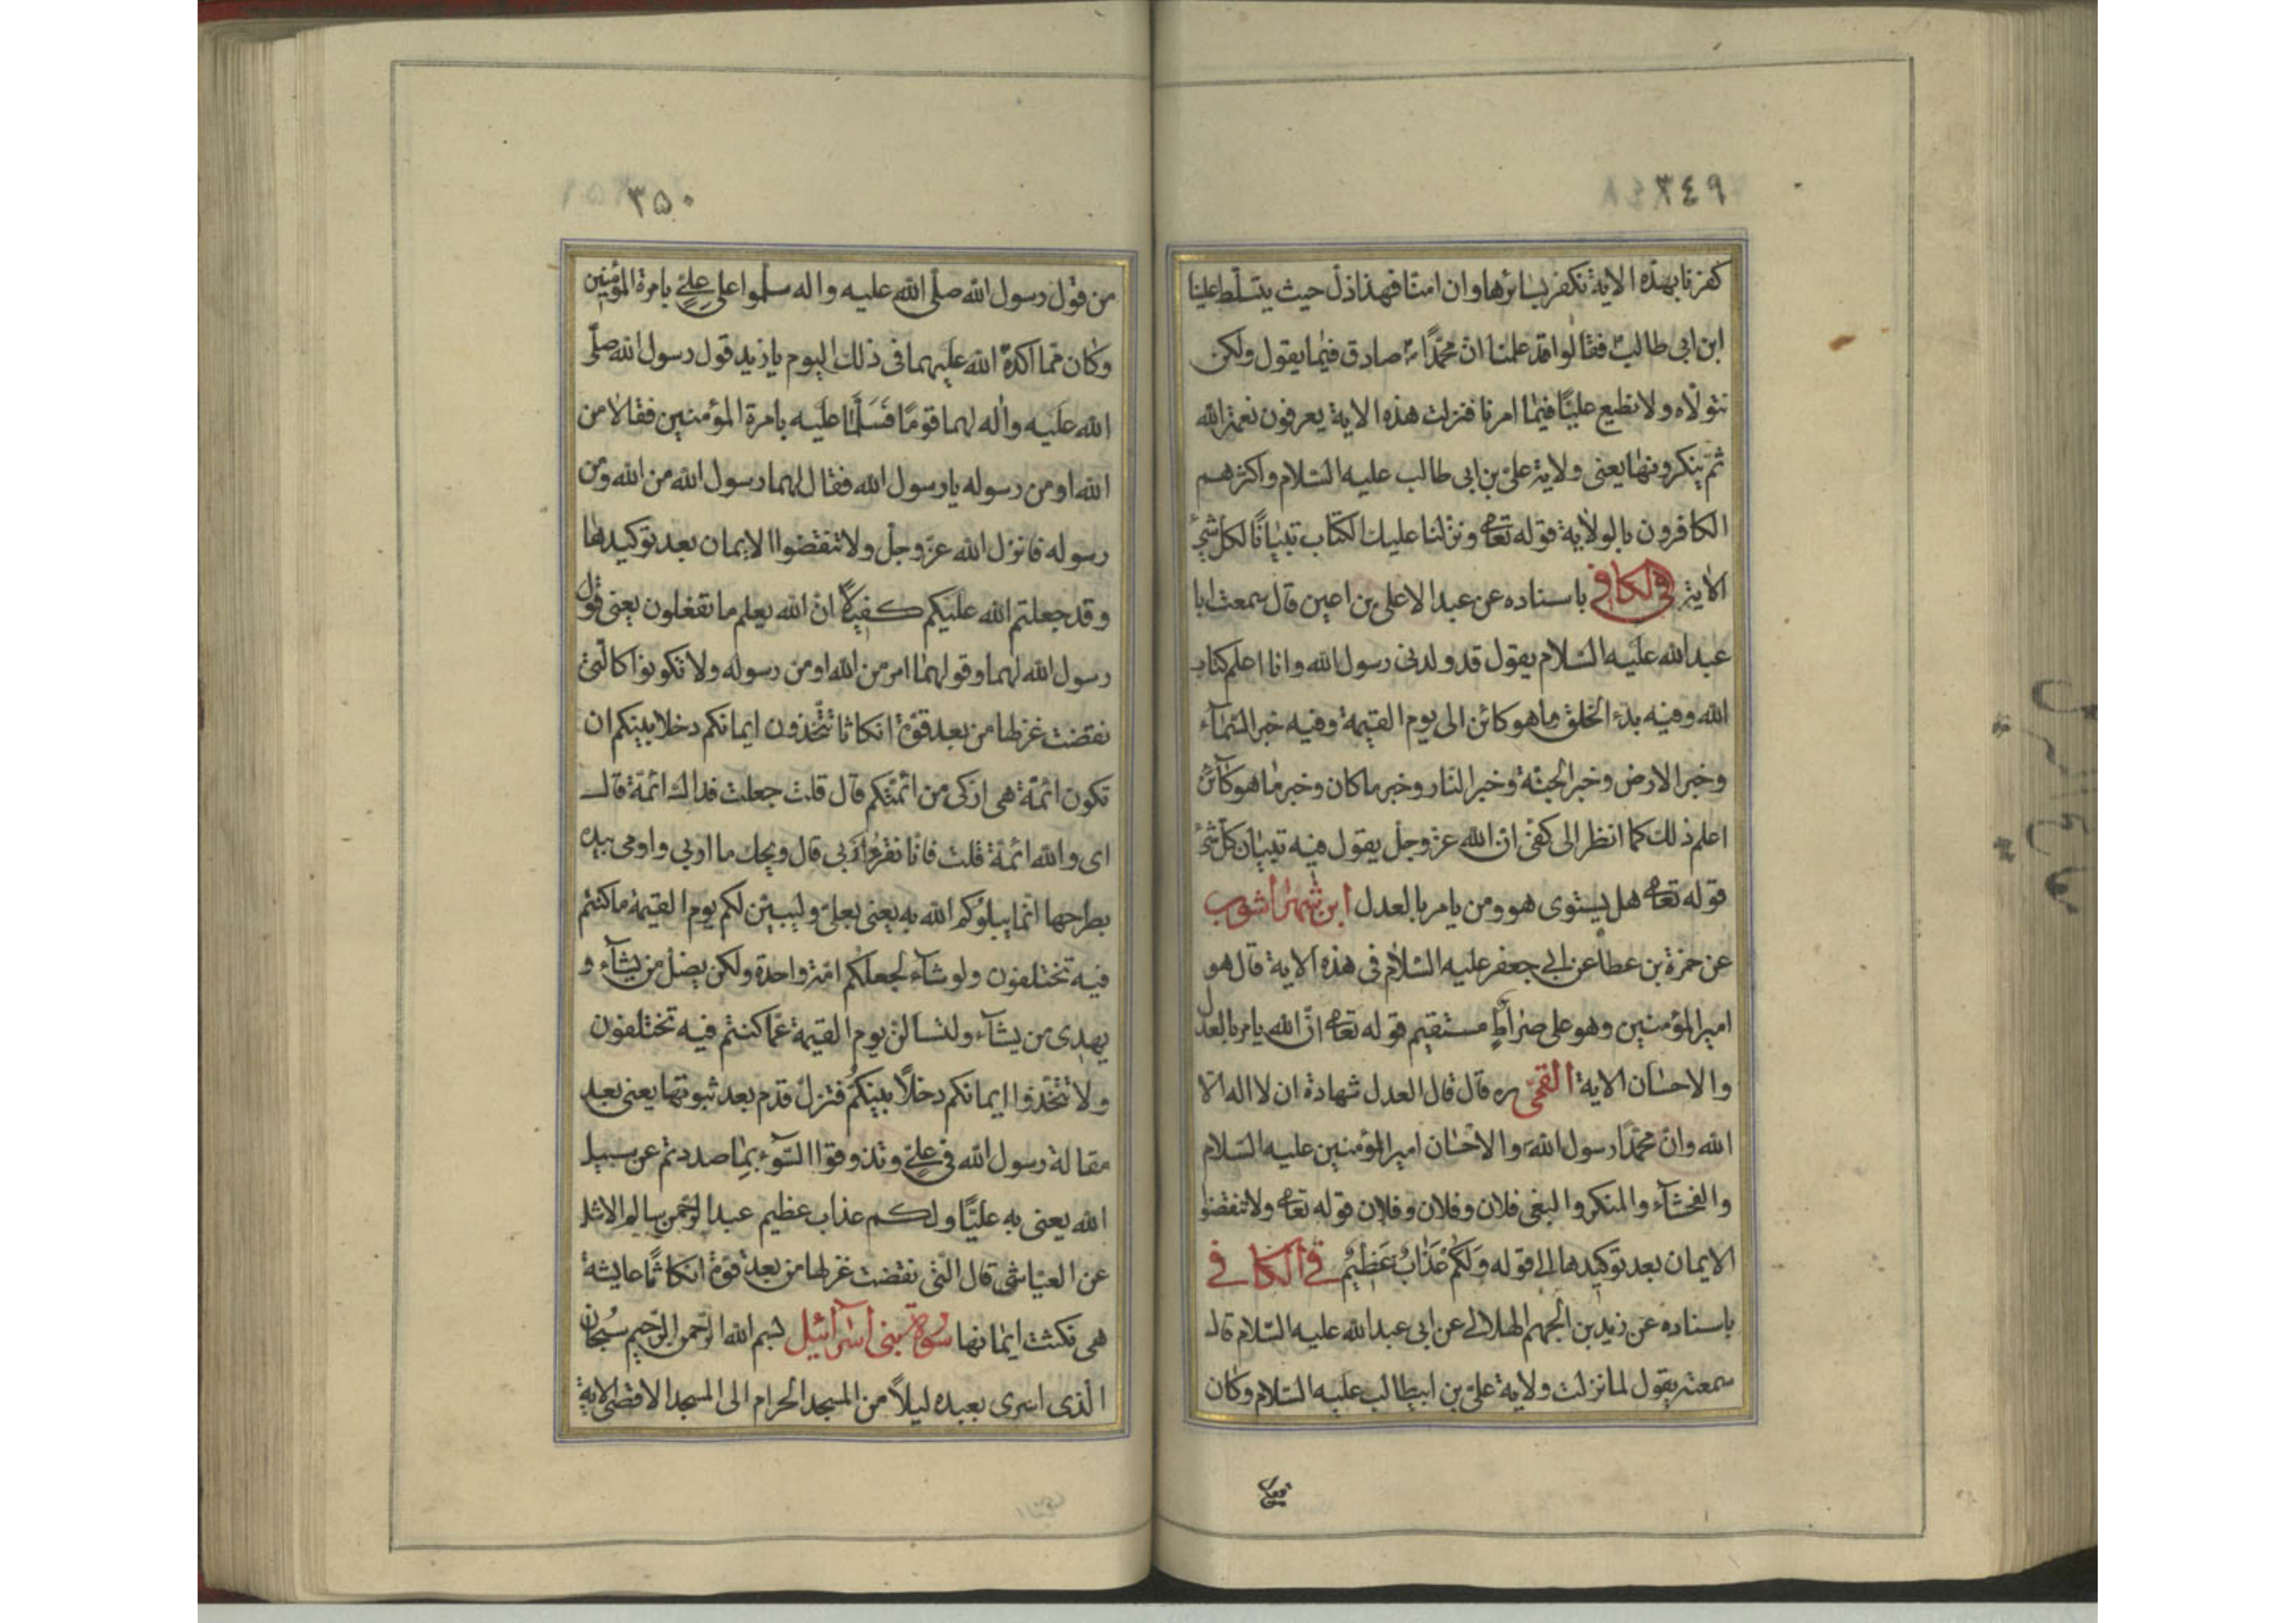 ٣٤٩
كفرنا بهذه الاية نكفر بسائرها وان امنا فهذا ذل حيث يتسلط علينا
ابن ابى طالب فقالوا قد علمنا ان محمدا صادق فيما يقول ولكن
نتولاه ولا نطيع عليا فيما امرنا فنزلت هذه الاية يعرفون نعمة الله
ثم ينكرونها يعنى ولاية على بن ابى طالب عليه السلام واكثرهم
الكافرون بالولاية قوله تعا ونزلنا عليك الكتاب تبيانا لكل شئ
الاية فى الكافى باسناده عن عبد الاعلى بن اعين قال سمعت ابا
عبد الله عليه السلام يقول قد ولدنى رسول الله وانا اعلم كتاب
الله وفيه بدء الخلق وما هو كائن الى يوم القيمة وفيه خبر السماء
وخبر الارض وخبر الجنة وخبر النار وخبر ما كان وخبر ما هو كائن
اعلم ذلك كما انظر الى كفى ان الله عز وجل يقول فيه تبيان كل شئ
قوله تعا هل يستوى هو ومن يامر بالعدل ابن شهراشوب
عن حمزة بن عطا عن ابى جعفر عليه السلام فى هذه الاية قال هو
امير المؤمنين وهو على صراط مستقيم قوله تعا ان الله يامر بالعدل
والاحسان الاية القمى ره قال قال العدل شهادة ان لا اله الا
الله وان محمدا رسول الله والاحسان امير المؤمنين عليه السلام
والفحشاء والمنكر والبغى فلان وفلان وفلان قوله تعا ولا تنقضوا
الايمان بعد توكيدها الى قوله ولكم عذاب عظيم فى الكافى
باسناده عن زيد بن الجهم الهلالى عن ابى عبد الله عليه السلام قال
سمعته يقول لما نزلت ولاية على بن ابيطالب عليه السلام وكان
٣٥٠
من قول رسول الله صلى الله عليه واله سلموا على على بامرة المؤمنين
وكان مما اكده الله عليهما فى ذلك اليوم يا زيد قول رسول الله صلى
الله عليه واله لهما قوما فسلما عليه بامرة المؤمنين فقالا من
الله او من رسوله يا رسول الله فقال لهما رسول الله من الله ومن
رسوله فانزل الله عز وجل ولا تنقضوا الايمان بعد توكيدها
وقد جعلتم الله عليكم كفيلا ان الله يعلم ما تفعلون يعنى قول
رسول الله لهما وقولهما امر من الله او من رسوله ولا تكونوا كالتى
نقضت غزلها من بعد قوة انكاثا تتخذون ايمانكم دخلا بينكم ان
تكون ائمة هى ازكى من ائمتكم قال قلت جعلت فداك ائمة قال
اى والله ائمة قلت فانا نقرء اربى قال ويحك ما اربى واومى بيده
بطرحها انما يبلوكم الله به يعنى بعلى وليبينن لكم يوم القيمة ما كنتم
فيه تختلفون ولو شاء لجعلكم امة واحدة ولكن يضل من يشاء و
يهدى من يشاء ولتسالن يوم القيمة عما كنتم فيه تختلفون
ولا تتخذوا ايمانكم دخلا بينكم فتزل قدم بعد ثبوتها يعنى بعد
مقالة رسول الله فى على وتذوقوا السوء بما صددتم عن سبيل
الله يعنى به عليا ولكم عذاب عظيم عبد الرحمن سالم الاشل
عن العياشى قال التى نقضت غزلها من بعد قوة انكاثا عايشة
هى نكثت ايمانها سورة بنى اسرائيل بسم الله الرحمن الرحيم سبحان
الذى اسرى بعبده ليلا من المسجد الحرام الى المسجد الاقصى الاية